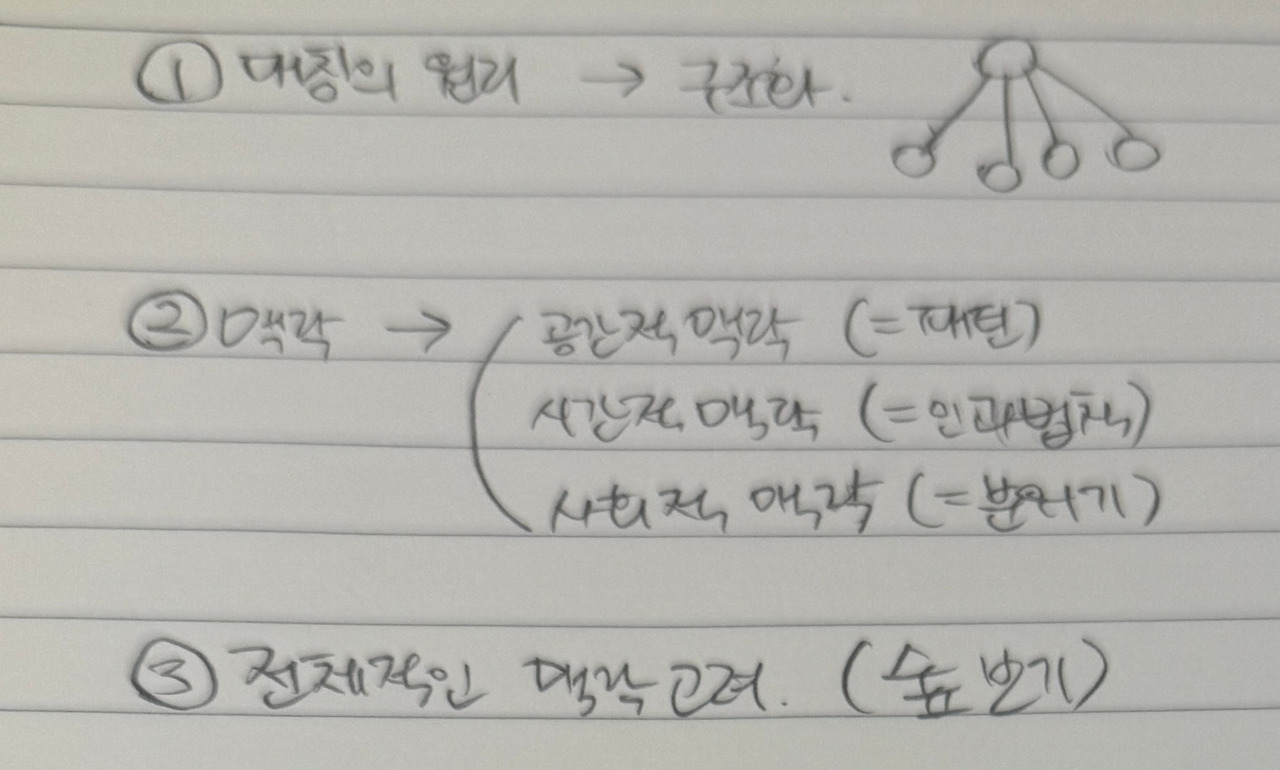 ① 대칭의 원리 → 구조화.
② 맥락 → 공간적 맥락 (=패턴)
시간적 맥락 (=인과법칙)
사회적 맥락 (=분위기)
③ 전체적인 맥락 고려. (숲 보기)